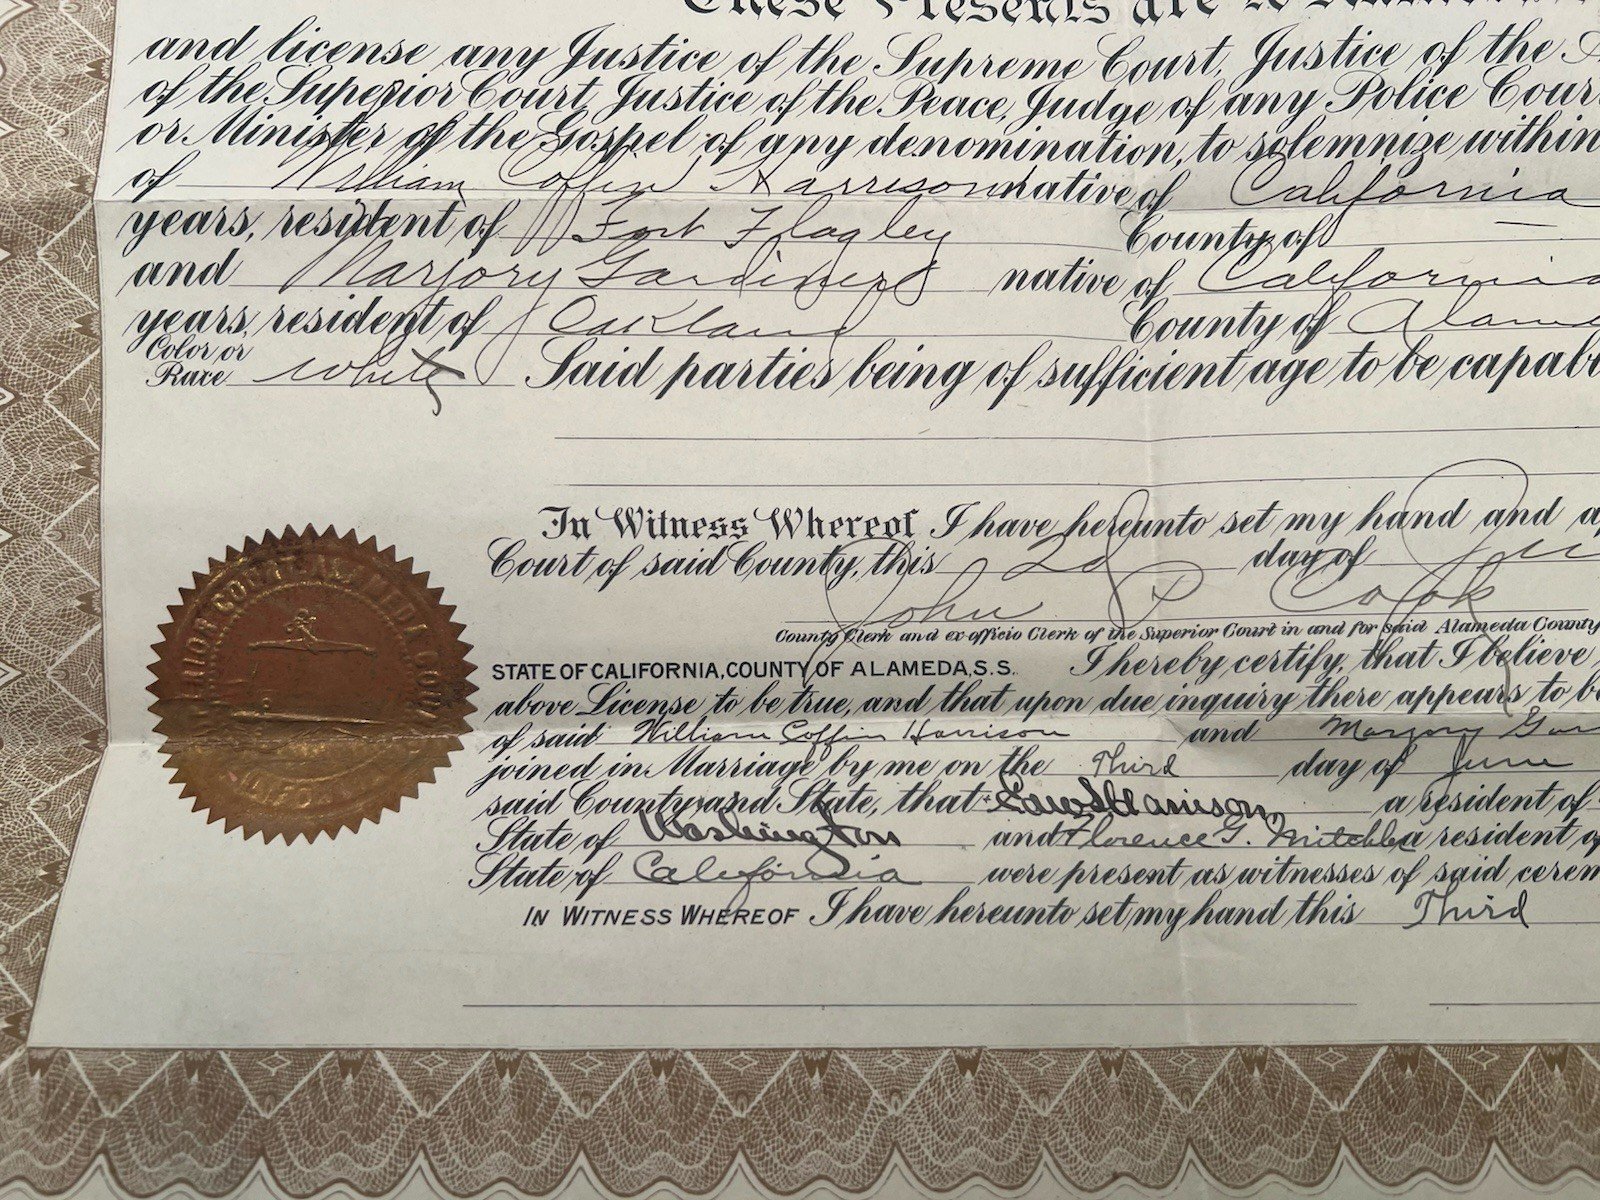 These Presents are to
and license any Justice of the Supreme Court, Justice of the
of the Superior Court, Justice of the Peace, Judge of any Police Cour
or Minister of the Gospel of any denomination, to solemnize within
of William Coffin Harrison native of California
years, resident of Fort Flagley County of —
and Marjory Gardiner native of California
years, resident of Oakland County of Alame
Color or Race White Said parties being of sufficient age to be capab
In Witness Whereof I have hereunto set my hand and a
Court of said County, this 2d day of
John P Cook
County Clerk and ex-officio Clerk of the Superior Court in and for said Alameda County
STATE OF CALIFORNIA, COUNTY OF ALAMEDA, S.S. I hereby certify, that I believe
above License to be true, and that upon due inquiry there appears to b
of said William Coffin Harrison and Marjory Gar
joined in Marriage by me on the Third day of June
said County and State, that Harrison, a resident of
State of Washington and Florence G. Mitchell a resident of
State of California were present as witnesses of said cerem
IN WITNESS WHEREOF I have hereunto set my hand this Third